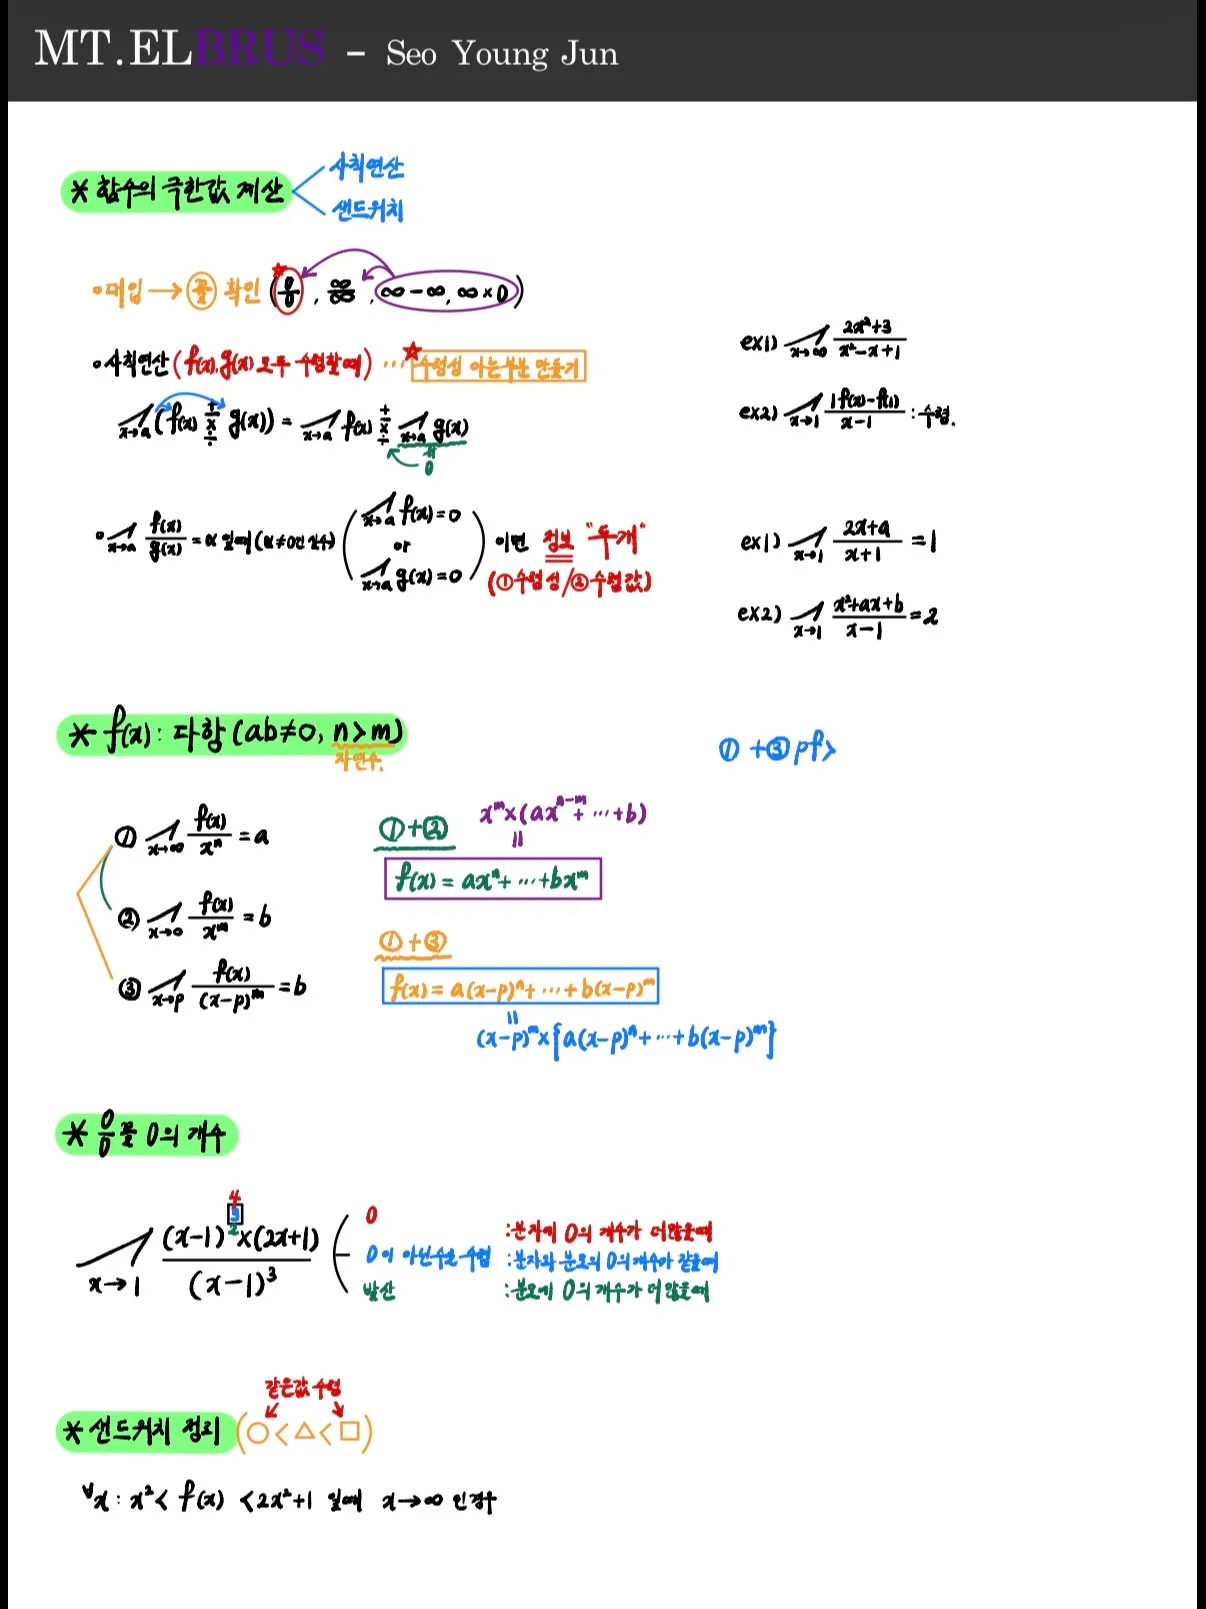 MT.ELBRUS - Seo Young Jun
* 함수의 극한값 계산
사칙연산
샌드위치
• 대입 → 꼴 확인 (0/0, ∞/∞, ∞-∞, ∞×0)
• 사칙연산 (f(x), g(x) 모두 수렴할 때) … ☆ 수렴성 아는 부분 만들기
lim x→a (f(x) + - × ÷ g(x)) = lim x→a f(x) + - × ÷ lim x→a g(x)
≠
0
ex1) lim x→∞ (2x²+3)/(x²-x+1)
ex2) lim x→1 |f(x)-f(1)|/(x-1) : 수렴.
• lim x→a f(x)/g(x) = α 일때 (α≠0인 실수) ( lim x→a f(x)=0 or lim x→a g(x)=0 ) 이면 정보 "두개"
(①수렴성/②수렴값)
ex1) lim x→1 (2x+a)/(x+1) = 1
ex2) lim x→1 (x²+ax+b)/(x-1) = 2
* f(x) : 다항 (ab≠0, n>m)
자연수.
① lim x→∞ f(x)/xⁿ = a
② lim x→0 f(x)/xᵐ = b
③ lim x→p f(x)/(x-p)ᵐ = b
①+②
xᵐ×(axⁿ⁻ᵐ+…+b)
=
f(x) = axⁿ+…+bxᵐ
①+③
f(x) = a(x-p)ⁿ+…+b(x-p)ᵐ
=
(x-p)ᵐ×{a(x-p)ⁿ+…+b(x-p)ᵐ}
① +③ pf>
* 0/0 꼴 0의 개수
4
3
2
lim x→1 (x-1)^□×(2x+1)/(x-1)³
0 : 분자에 0의 개수가 더많을때
0이 아닌수로 수렴 : 분자와 분모의 0의 개수가 같을때
발산 : 분모에 0의 개수가 더많을때
같은값 수렴
* 샌드위치 정리 (○<△<□)
∀x : x² < f(x) < 2x²+1 일때 x→∞ 인경우